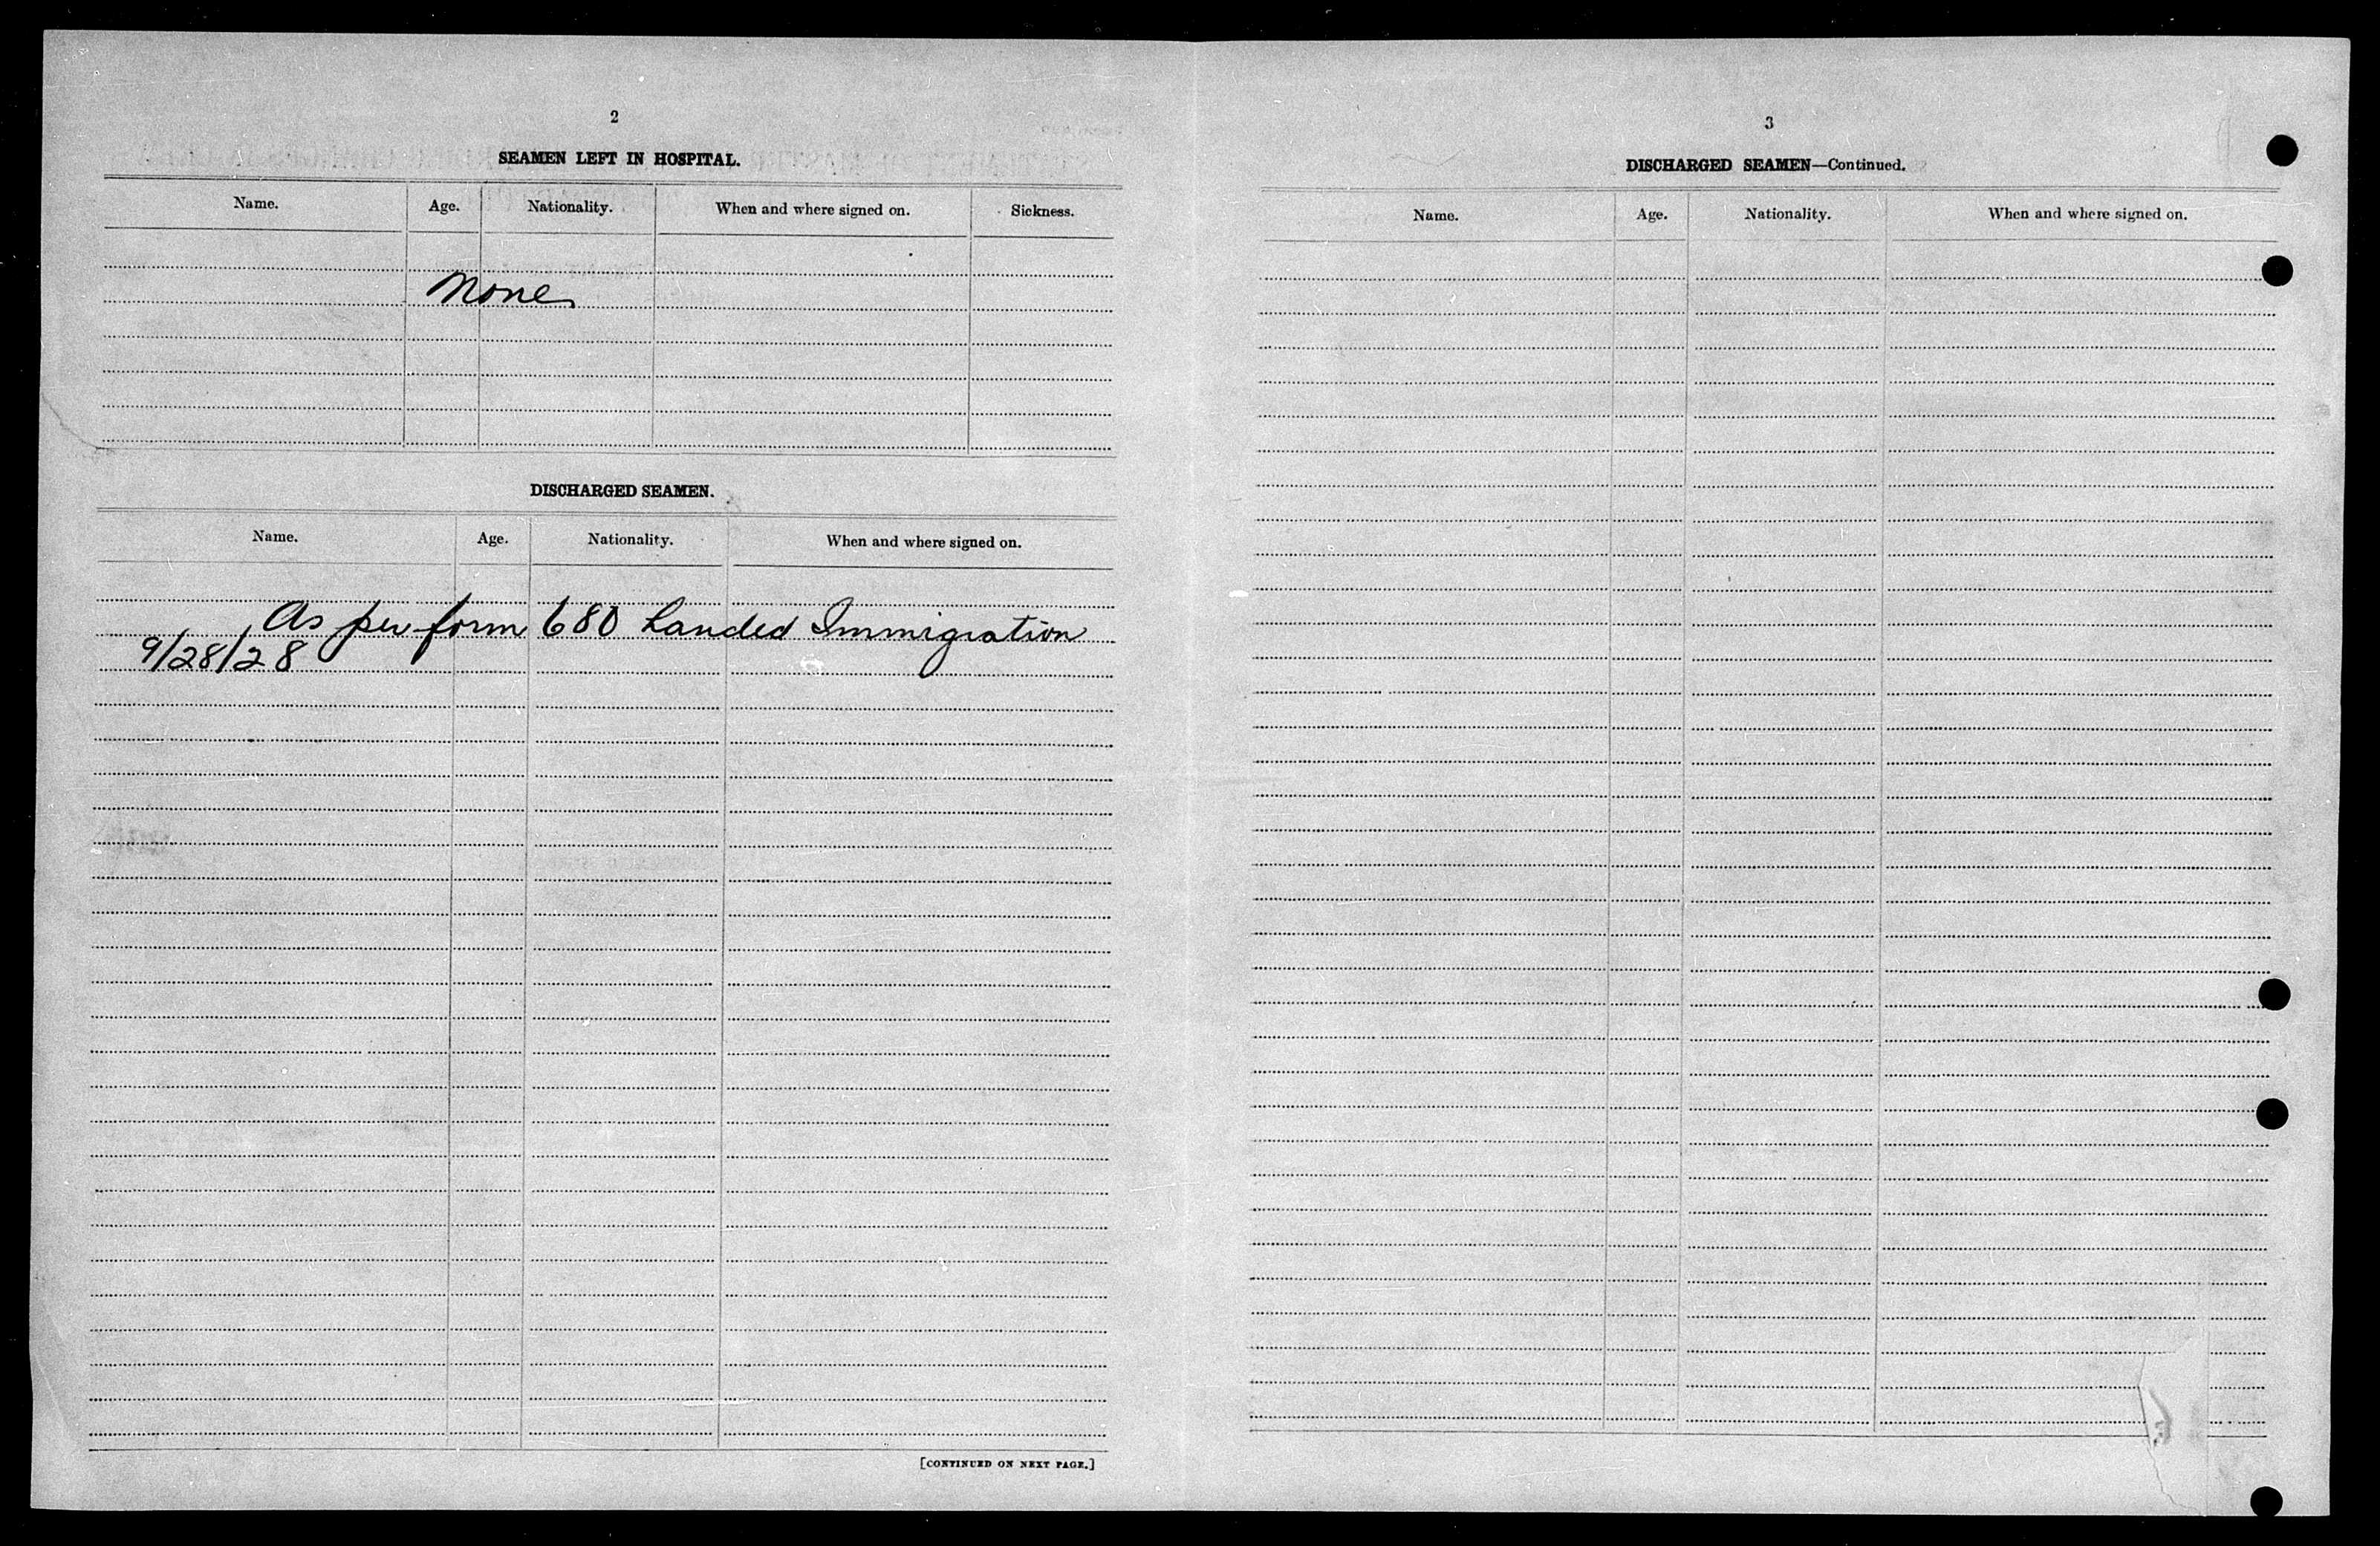 2
SEAMEN LEFT IN HOSPITAL.
Name. Age. Nationality. When and where signed on. Sickness.
None
DISCHARGED SEAMEN.
Name. Age. Nationality. When and where signed on.
As per form 680 handed Immigration
9/28/28
[CONTINUED ON NEXT PAGE.]
3
DISCHARGED SEAMEN—Continued.
Name. Age. Nationality. When and where signed on.